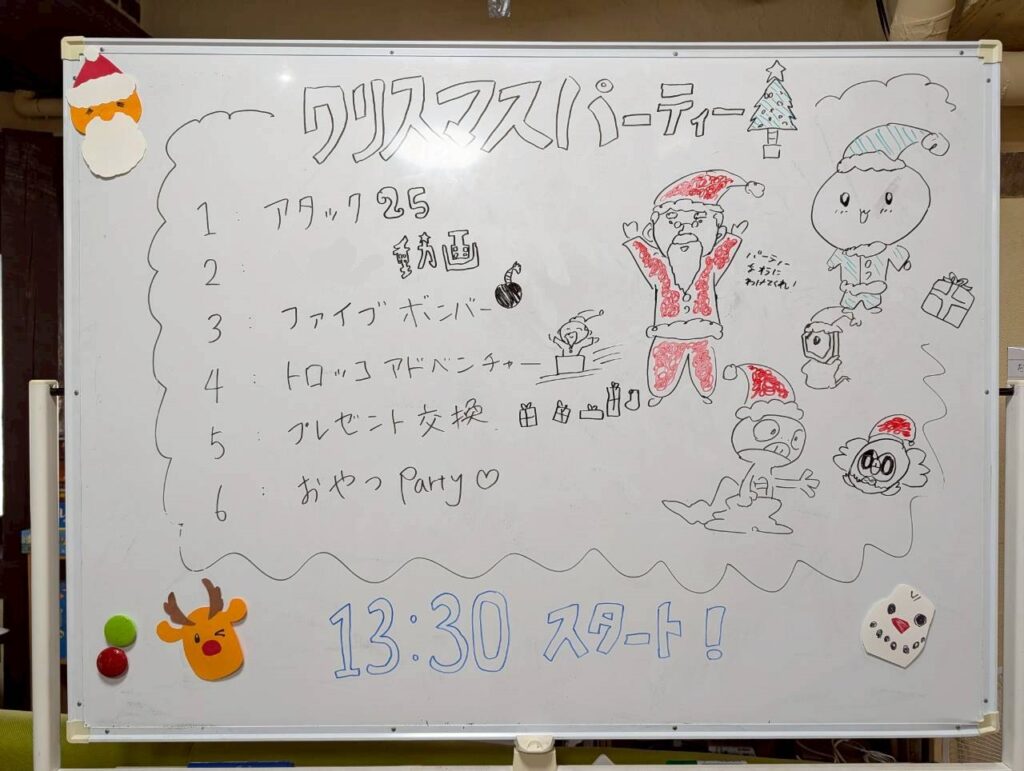 クリスマスパーティー
1 : アタック25
2 動画
3 : ファイブボンバー
4 : トロッコアドベンチャー
5 : プレゼント交換
6 : おやつ Party♡
パーティー
13:30 スタート!